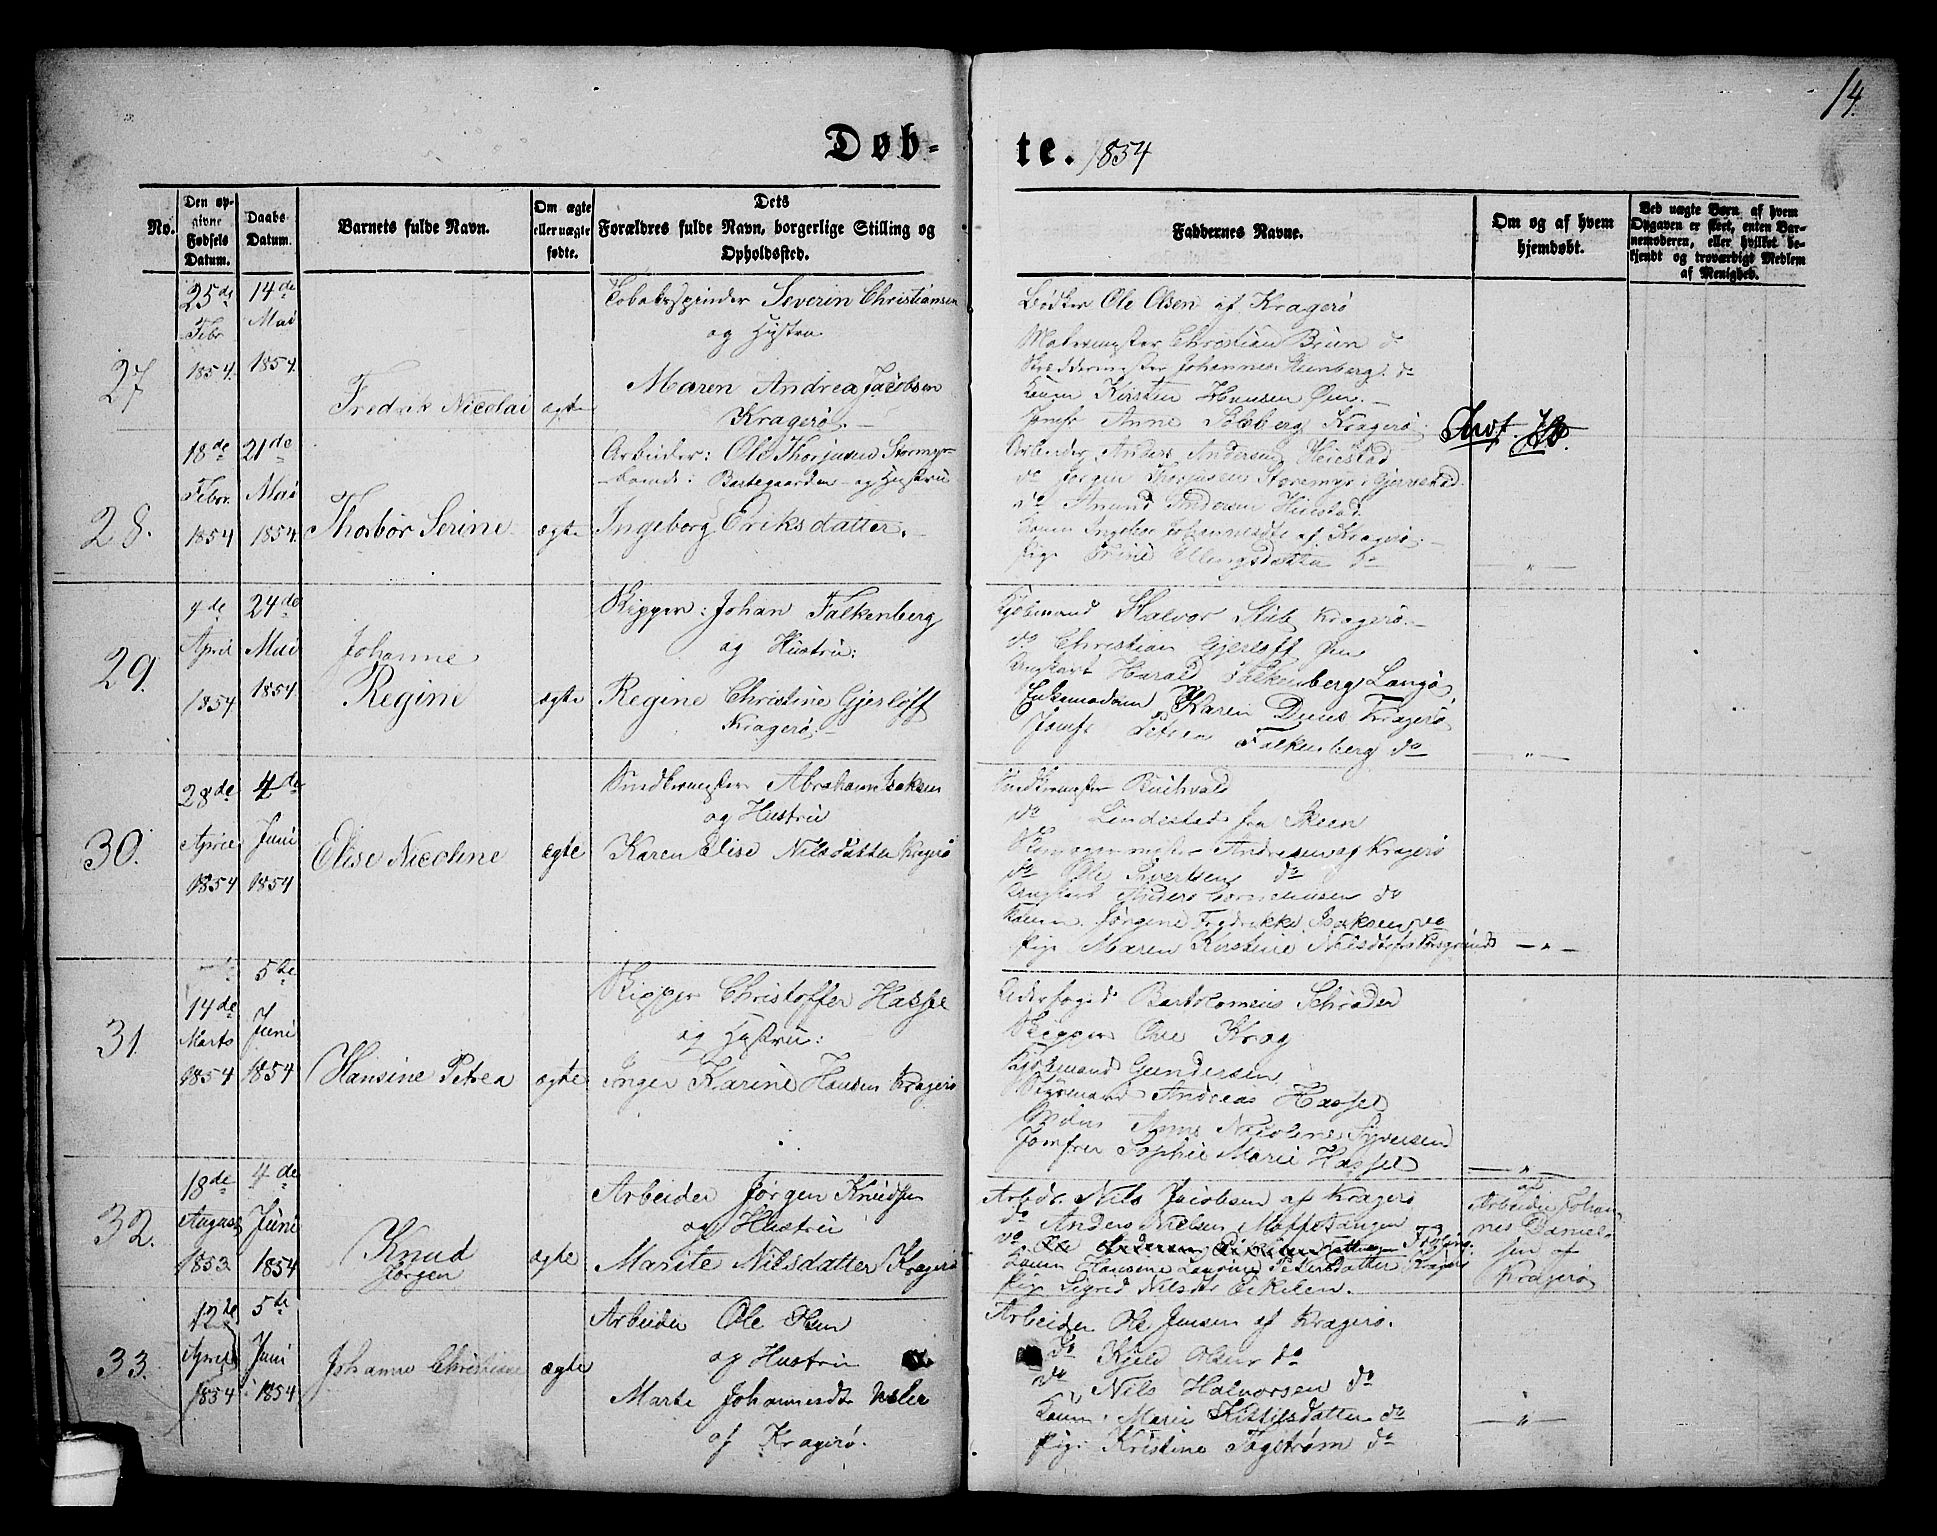 14.
Døb-
te. 1854
No.
Den op-
givne
Fødsels
Datum.
Daabs-
Datum.
Barnets fulde Navn.
Om ægte
eller uægte
fødte.
Dets
Forældres fulde Navn, borgerlige Stilling og
Opholdssted.
Faddernes Navne.
Om og af hvem
hjemdøbt.
Ved uægte Børn, af hvem
Opgaven er skeet, enten Bar-
nemoderen, eller hvilket be-
kjendt og troværdigt Medlem
af Menighed.
27
25de
Febr
1854.
14de
Mai
1854
Fredrik Nicolai
ægte
Tobaksspinder Severin Christiansen
og Hustru
Maren Andrea Jacobsen
Kragerø.
Bødker Ole Olsen af Kragerø
Malermester Christian Brun do
Skreddermester Johannes Stenberg do
Konen Kirsten Hansen Øen.
Jomfr Anne Solberg Kragerø
28.
18de
Febr.
1854
21de
Mai
1854.
Thorbør Serine
ægte
Arbeider: Ole Thorjusen Stormyr-
og Hustru
Ingeborg Eriksdatter.
Arbeider Anders Andersen Heiestad
do Jørgen Thorjusen Storemyr i Gjerrestad
do Amund Andersen Heiestad
Konen Ingebor Johannesdtr af Kragerø
Pige Trine Ellingsdatter do
"
29.
4de
April
1854
24de
Mai
1854.
Johanne
Regine
ægte
Skipper: Johan Falkenberg
og Hustru:
Regine Christine Gjerløff
Kragerø.
Kjøbmand Halvor Stub Kragerø.
do Christian Gjerløff Øen
Ungkarl Harald Falkenberg Langø
Enkemadam Karen Duus Kragerø
Jomfr Petrea Falkenberg do
"
30.
28de
April
1854
4de
Juni
1854
Elise Nicoline
ægte
Snedkermester Abraham Isaksen
og Hustru
Karen Elise Nilsdatter Kragerø
Snedkermester Buchvald
do Lindestad fra Skeen
Skomagermester Andresen af Kragerø
do Ole Sivertsen do
Ungkarl Anders Cornelius­sen do
Konen Jørgine Fredrikke Isaksen do
Pige Maren Kirstine Nilsdtr fra Porsgrund
"
31.
14de
Marts
1854
5te
Juni
1854
Hansine Petrea
ægte
Skipper Christoffer Hassel
og Hustru:
Inger Karine Hansen Kragerø
Bartolomeus Schrøder
Skipper Ole Krog
Kjøbmand Gundersen
Styrmand Andreas Hassel
Madm Anne Nicoline Syversen
Jomfru Sophie Marie Hassel
"
32.
18de
August
1853
4de
Juni
1854
Knud
Jørgen
ægte
Arbeider Jørgen Knudsen
og Hustru
Marite Nilsdatter Kragerø
Arbdr. Nils Jacobsen af Kragerø
do Anders Nielsen
do Ole
Konen Hansine Laurine Pedersdatter Kragerø
Pige Sigrid Nilsdtr Eikelen.
af
Arbeider Johan-
nes Daniel-
sen af
Kragerø
33.
12te
April
1854
5te
Juni
1854
Johanne Christiane
ægte
Arbeider Ole Olsen
og Hustru
Marte Johannesdtr
af Kragerø.
Arbeider Ole Jensen af Kragerø.
do Kjeld Olsen do
do Nils Halvorsen do
Konen Marie Kittilsdatter do
Pige Kristine Fagstrøm do
"